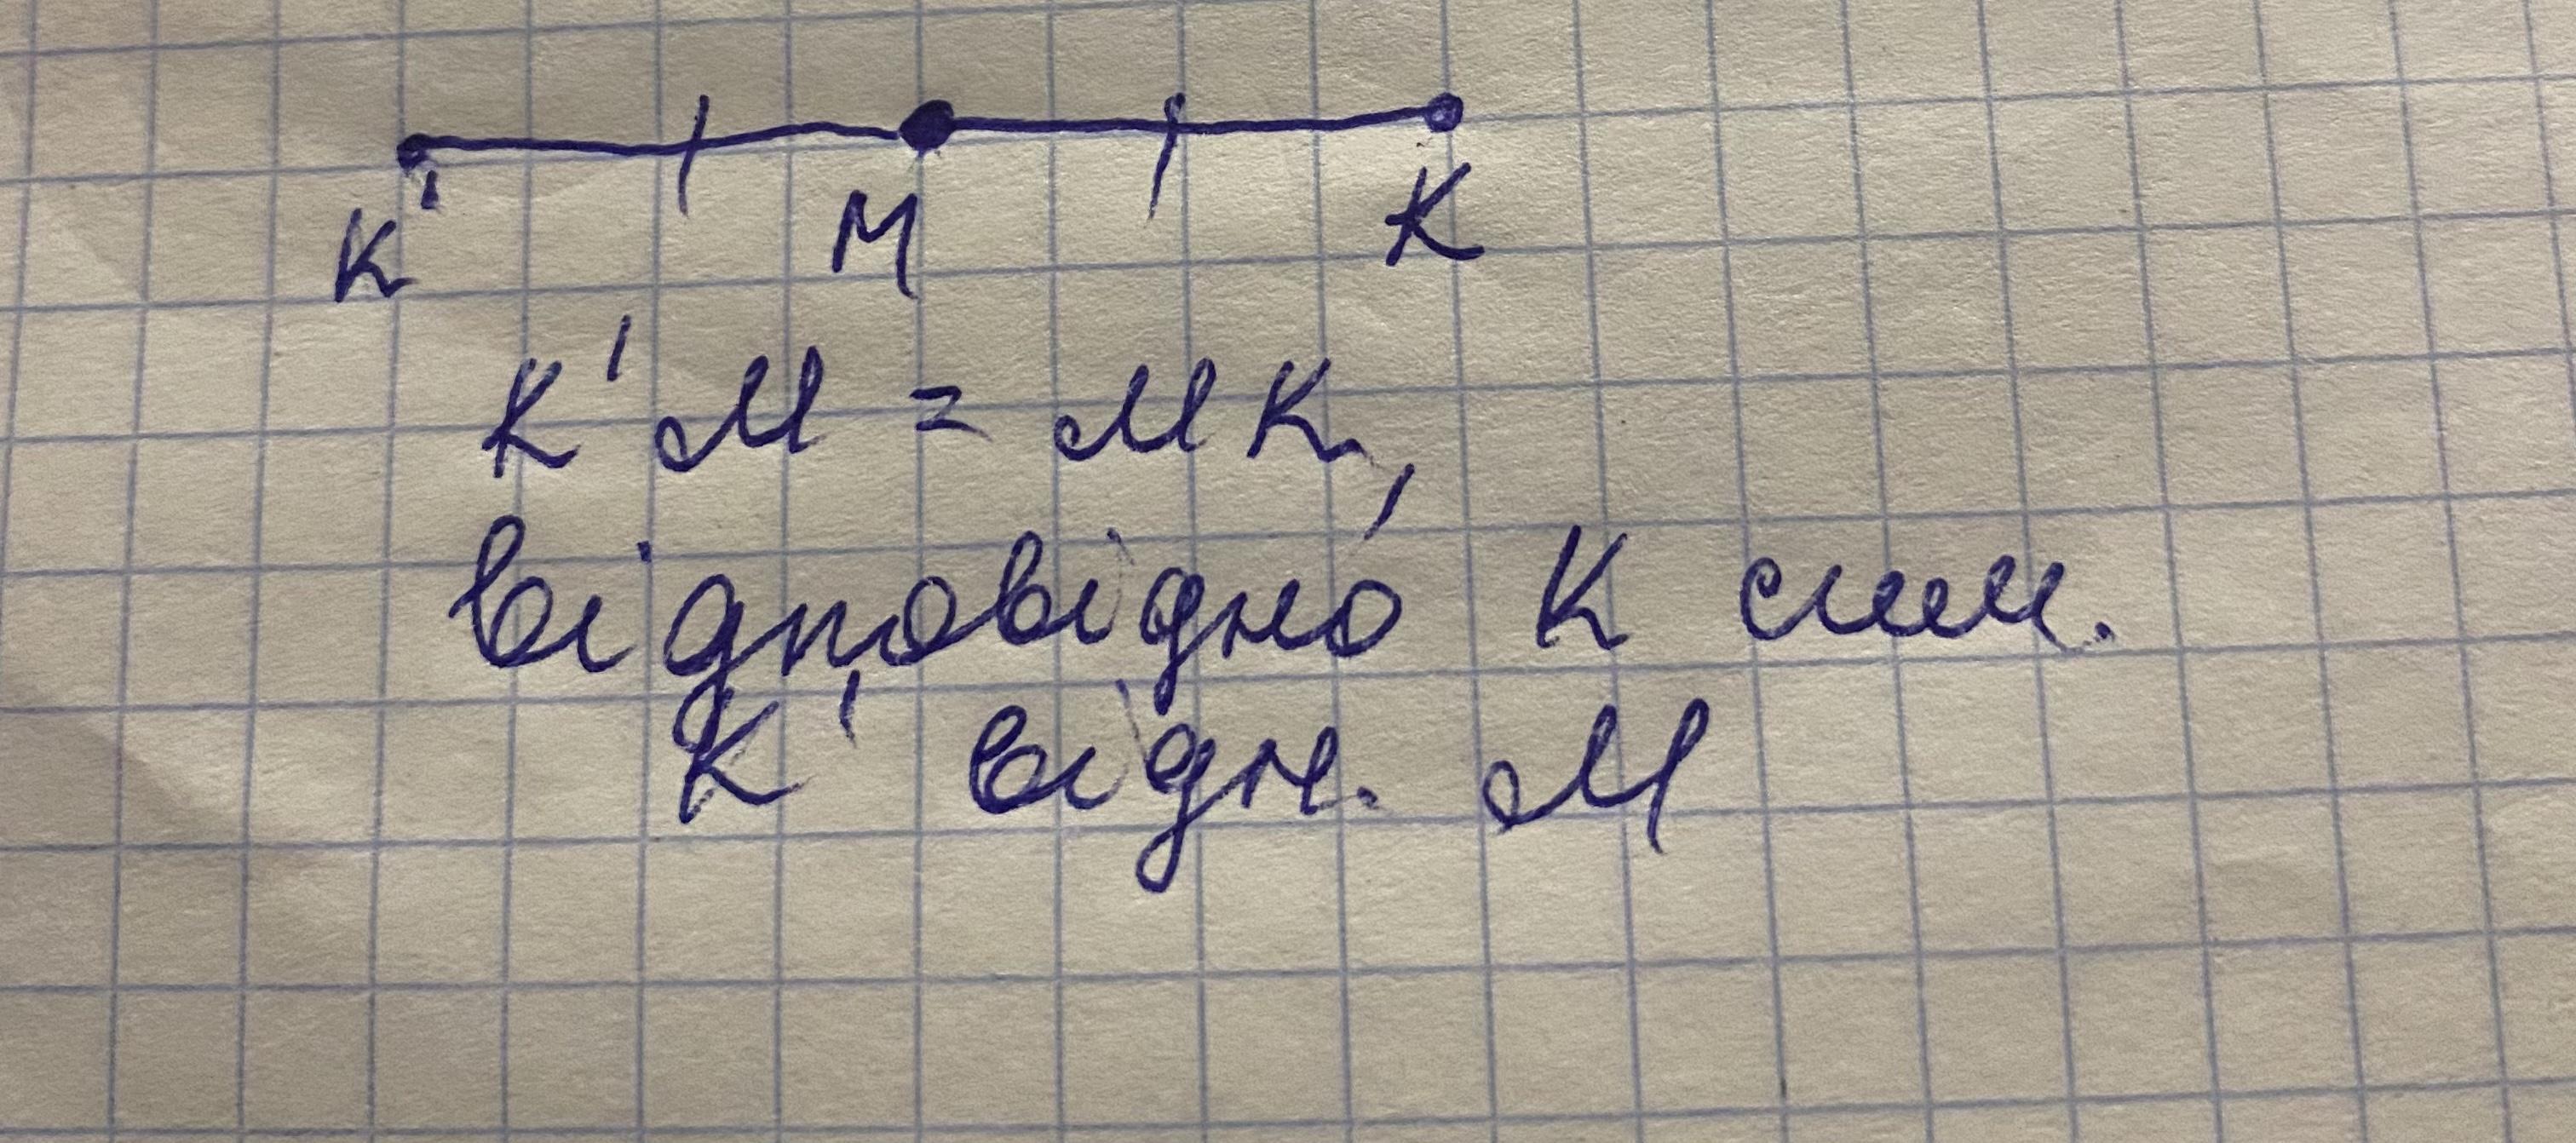 K' M K
K'M = MK,
відповідно K сим.
K' відн. M